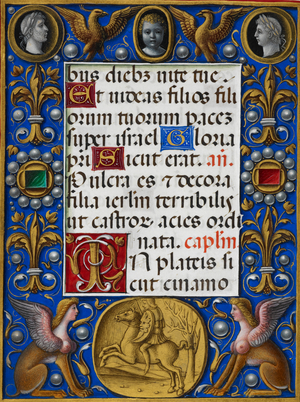 bus diebꝫ uite tue.
Et uideas filios fili
orum tuorum paceꝫ
super israel Gloria
pri Sicut erat. añ.
Pulcra es ⁊ decora
filia ierl̃m terribilis
ut castroꝝ acies ordi
nata. capl̃m
IN plateis si
cut cinamo